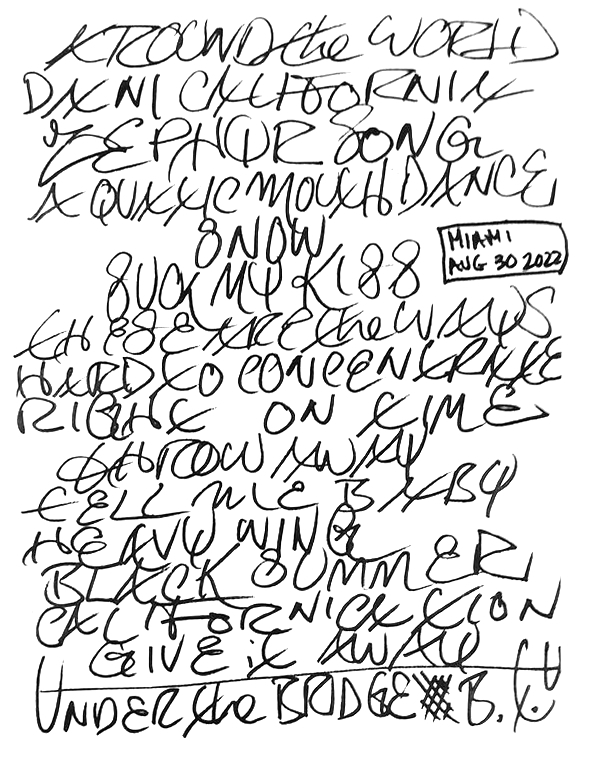 AROUND the WORLD
DANI CALIFORNIA
ZEPHYR SONG
AQUATIC MOUTH DANCE
SNOW
SUCK MY KISS
MIAMI
AUG 30 2022
THESE ARE the WAYS
HARD TO CONCENTRATE
RIGHT ON TIME
THROW AWAY
TELL ME BABY
HEAVY WING
BLACK SUMMER
CALIFORNICATION
GIVE iT AWAY
UNDER the BRIDGE B.